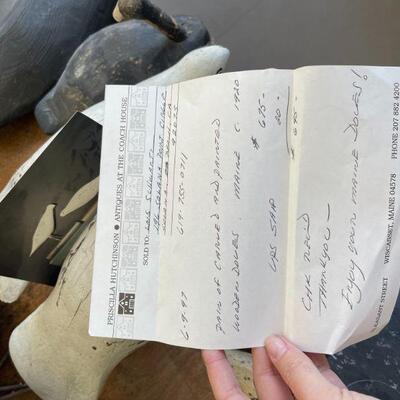 PRISCILLA HUTCHINSON ● ANTIQUES AT THE COACH HOUSE
SOLD TO: LOIS
POINT CIRCLE
92075
619-755-0711
6-9-97
PAIR OF CARVED AND PAINTED
WOODEN DOVES. MAINE C. 1920
$ 675-
UPS S&H 20-
$ 695-
CK REC'D
THANK YOU -
Enjoy your MAINE DOVES!
PLEASANT STREET WISCASSET, MAINE 04578 PHONE 207 882 4200